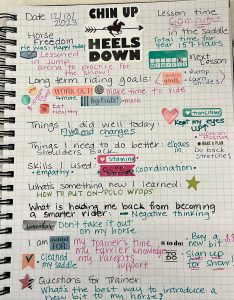 Date 12/13/2023
CHIN UP
HEELS DOWN
Lesson time
in the Saddle
Horse
Freedom
He was: Happy today
Total time for year 157 Hours
Lessoned in Jump arena to practice for the show!
next lesson
Jump
Long term riding goals:
WORK OUT!
make time to ride
Eat Healthy
Hydrate more
Things I did well today:
transition
Flying lead changes
Kept my eyes up!
Things I need to do better: elbows
Shoulders Back
MAKE A PLAN
Do back stretches
Skills I used
stamina
empathy
core strength
coordination
What's something new I learned:
HOW TO PUT ON POLO WRAPS
What is holding me back from becoming a smarter rider:
Negative thinking
remember
Don't take it out on my horse
I am grateful for:
my Trainer's Time
my farrier Knowledge
my Parents Support
cleaned my saddle
to do:
Buy a new bit
Sign up for show!
$$
Questions for Trainer
Whats the best way to introduce a new bit to my horse?